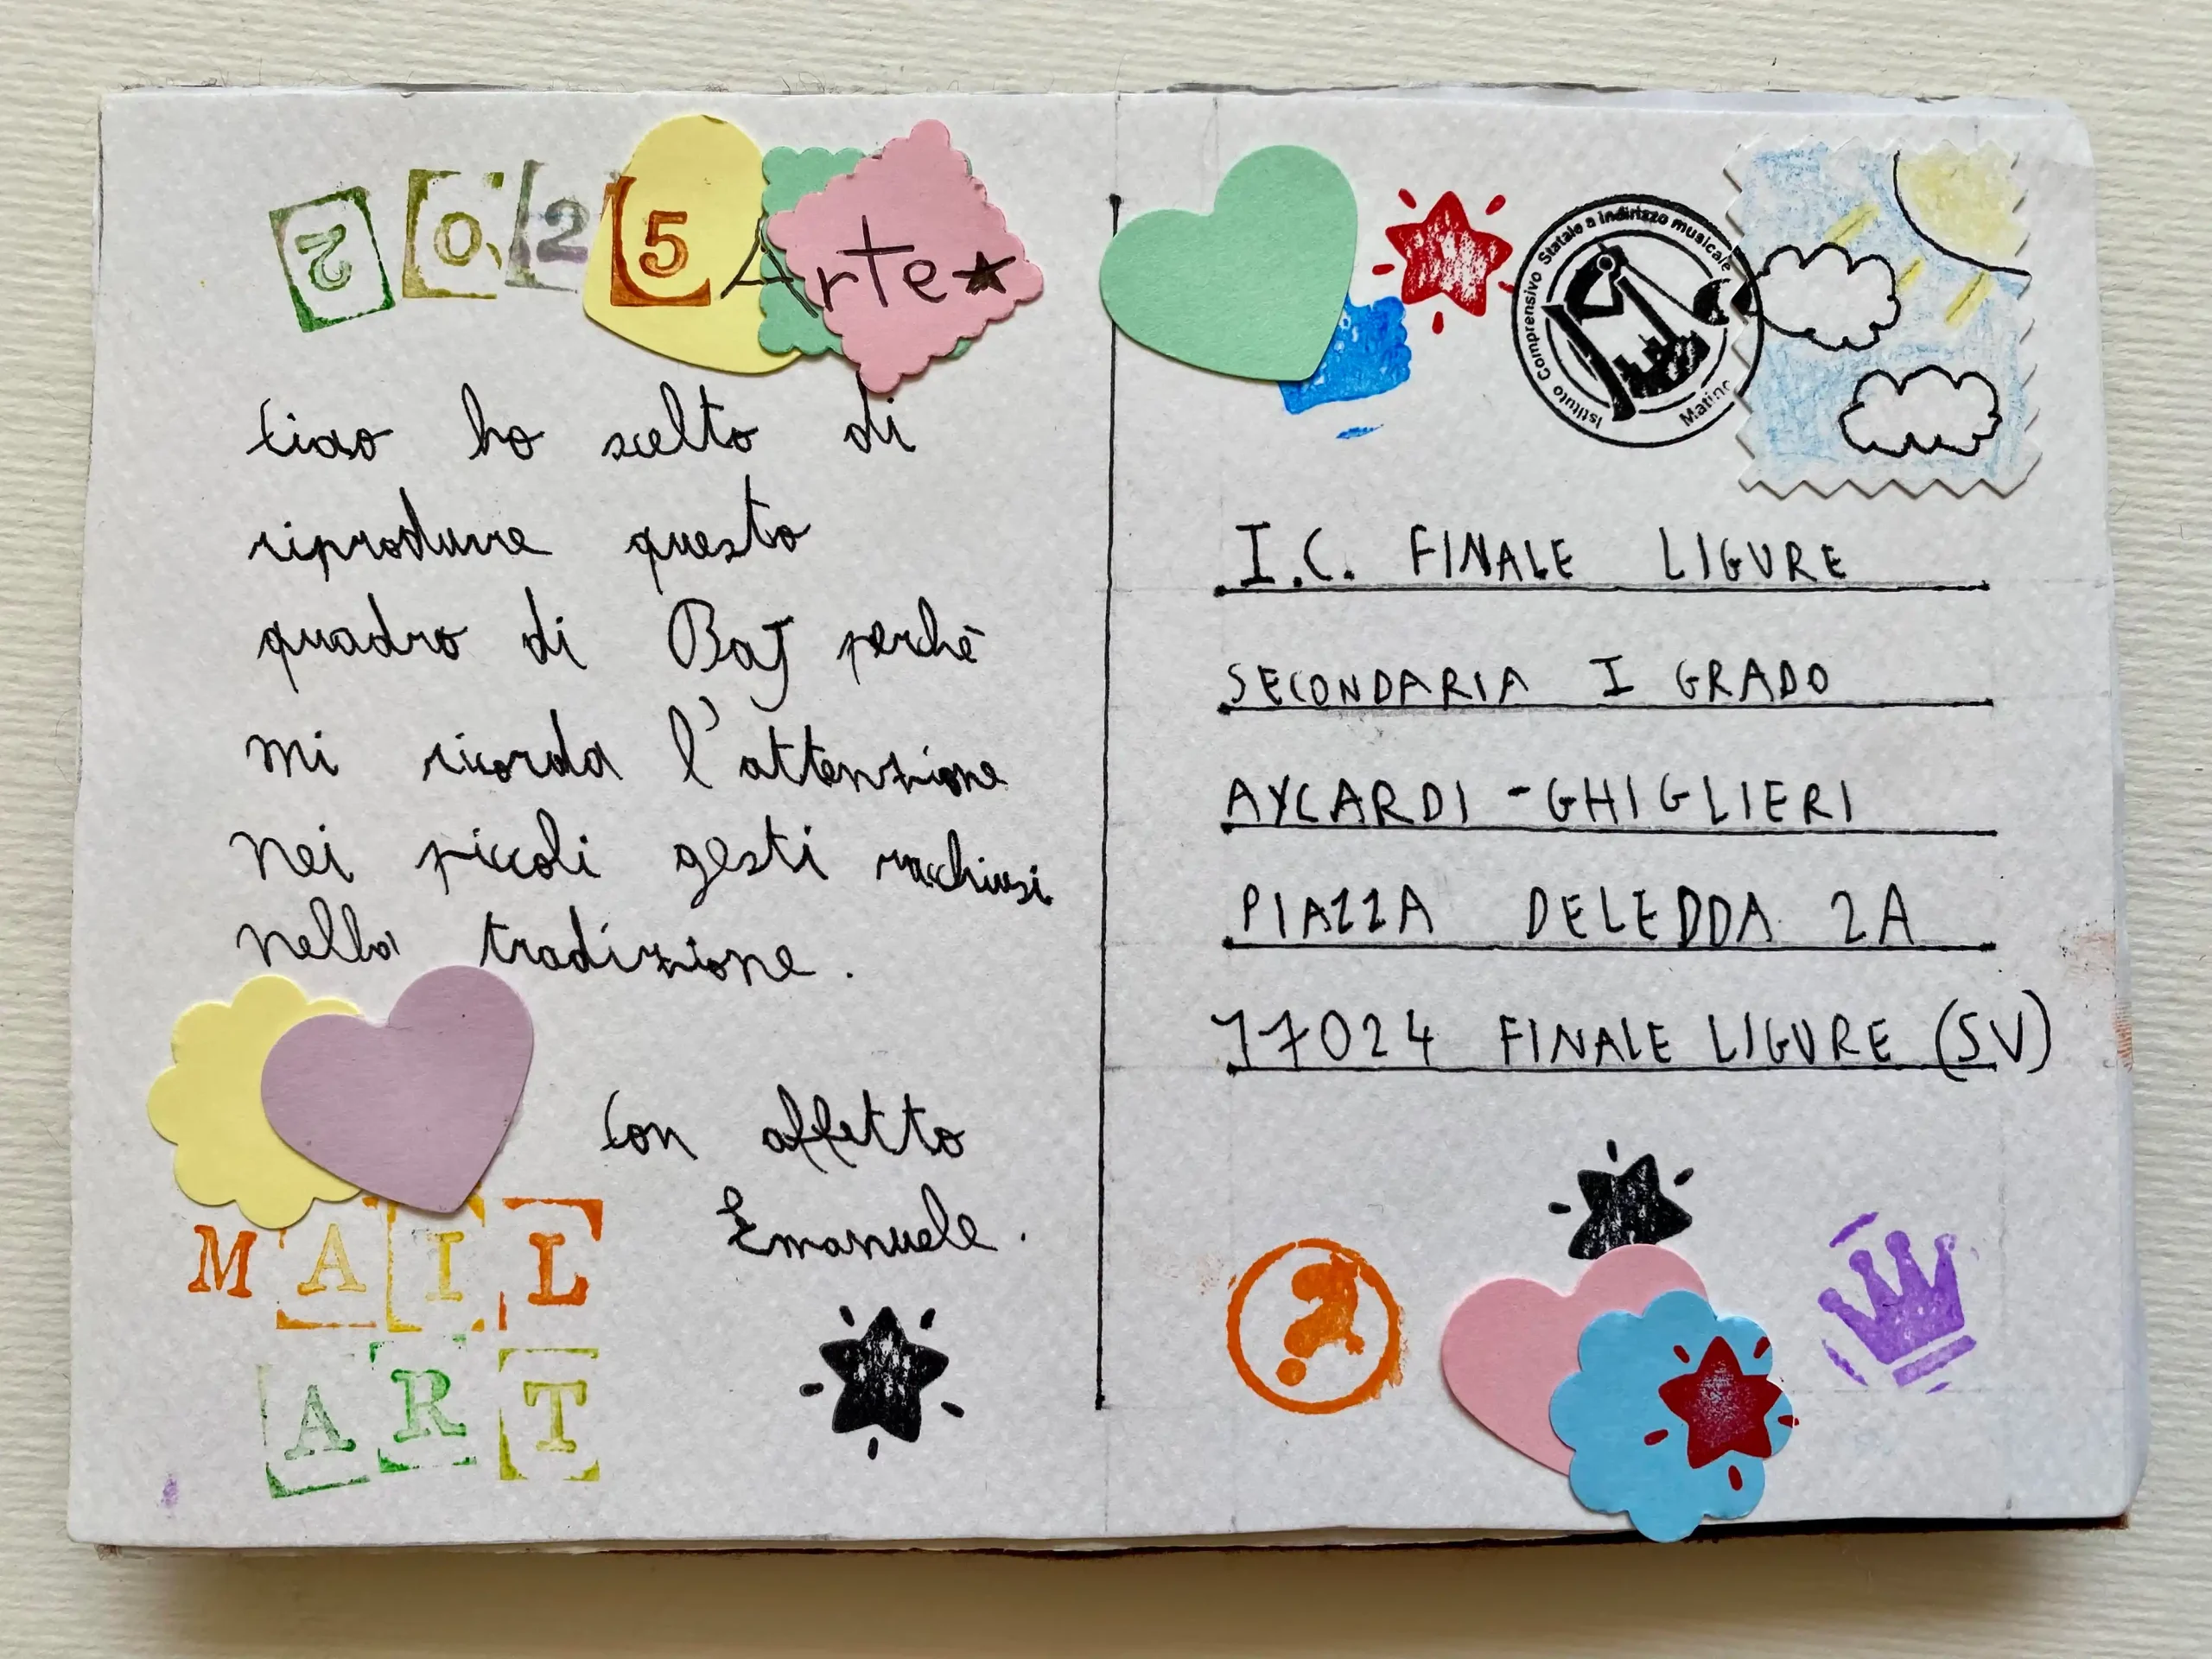 2025 Arte
Ciao ho scelto di
riprodurre questo
quadro di Baj perchè
mi ricorda l'attenzione
nei piccoli gesti racchiusi
nella tradizione.
Con affetto
Emanuele.
MAIL
ART
Istituto Comprensivo Statale a indirizzo musicale
Matino
I.C. FINALE LIGURE
SECONDARIA I GRADO
AYCARDI-GHIGLIERI
PIAZZA DELEDDA 2A
17024 FINALE LIGURE (SV)
?